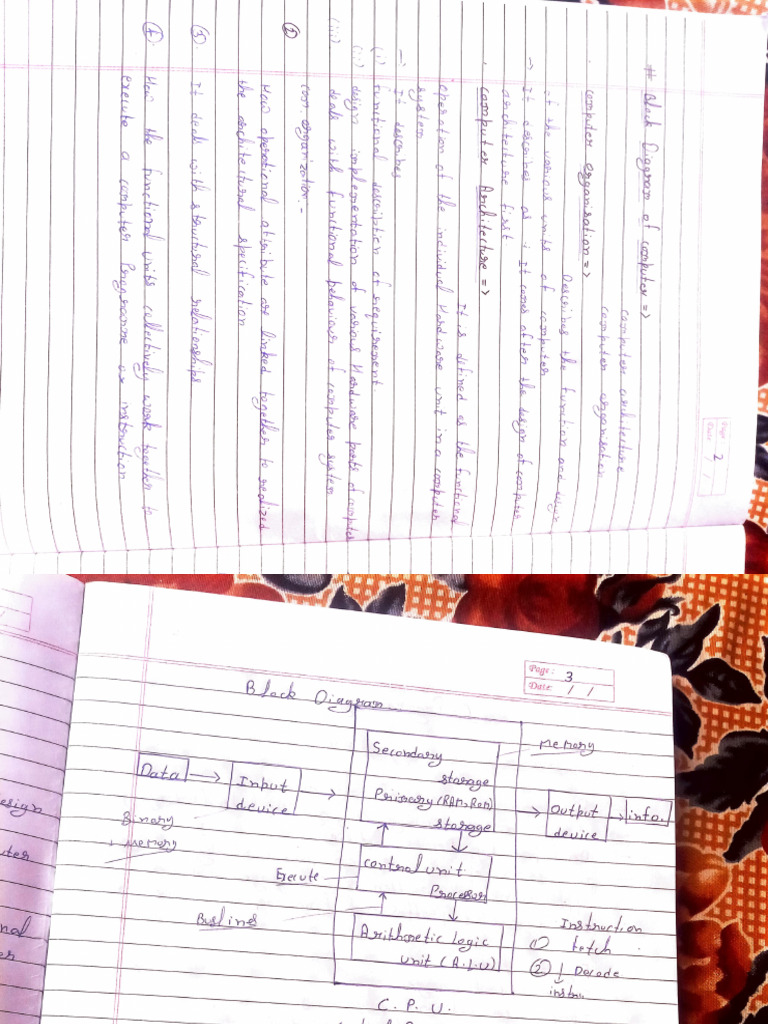 Page: 2
Date: / /
# Block Diagram of computer =>
computer architecture
computer organisation
. computer organisation =>
Describes the function and design
of the various units of computer
-> It describes as : It comes after the design of computer
architecture first
. computer Architecture =>
It is defined as the functional
operation of the individual Hardware unit in a computer
system
-> It describes
(i) functional description of requirement.
(ii) design implementation of various Hardware parts of computer
(iii) deals with functional behaviour of computer system
② com-organization:-
How operational atribute are linked together to realized
the architectural specification
③. It deals with structural relationships
④. How the functional units collectively work together to
execute a computer Programme or instruction
Page: 3
Date: / /
Block Diagram
Data
Input
device
Binary
memory
Secondary
storage
Primary (RAM, ROM)
storage
memory
Output
device
info.
Execute
control unit
Processor
Buslines
Arithmetic logic
unit (A.L.U)
C.P.U.
Instruction
① fetch
② ↓ Decode
instru.
esign
uter
nal
er